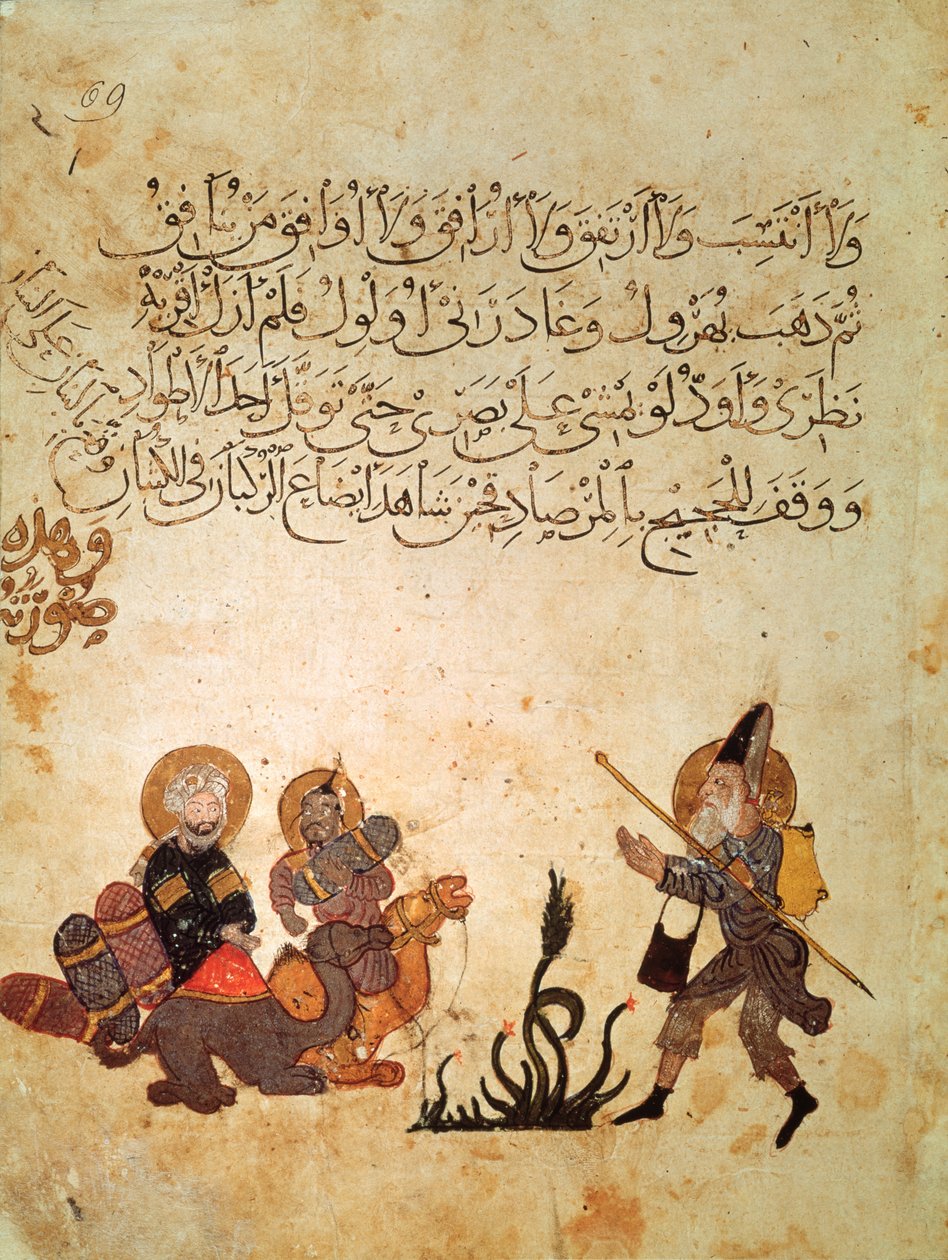 69
وَلَا أَنْتَسِبَ وَلَا أَرْتَفِقَ وَلَا أُرَافِقَ وَلَا أُوَافِقَ مَنْ يُنَافِقُ
ثُمَّ ذَهَبَ يُهَرْوِلُ وَغَادَرَنِي أُوَلْوِلُ فَلَمْ أَزَلْ أَقْرِيْهِ
نَظَرِيْ وَأَوَدُّ لَوْ يَمْشِيْ عَلَى بَصَرِيْ حَتَّى تَوَقَّلَ أَحَدَ الْأَطْوَادِ
وَوَقَفَ لِلْحَجِيْجِ بِالْمِرْصَادِ فَحِيْنَ شَاهَدَ إِيْضَاعَ الرُّكْبَانِ فِي الْكُثْبَانِ
وقع البنان على البنان
وهذه
صورته